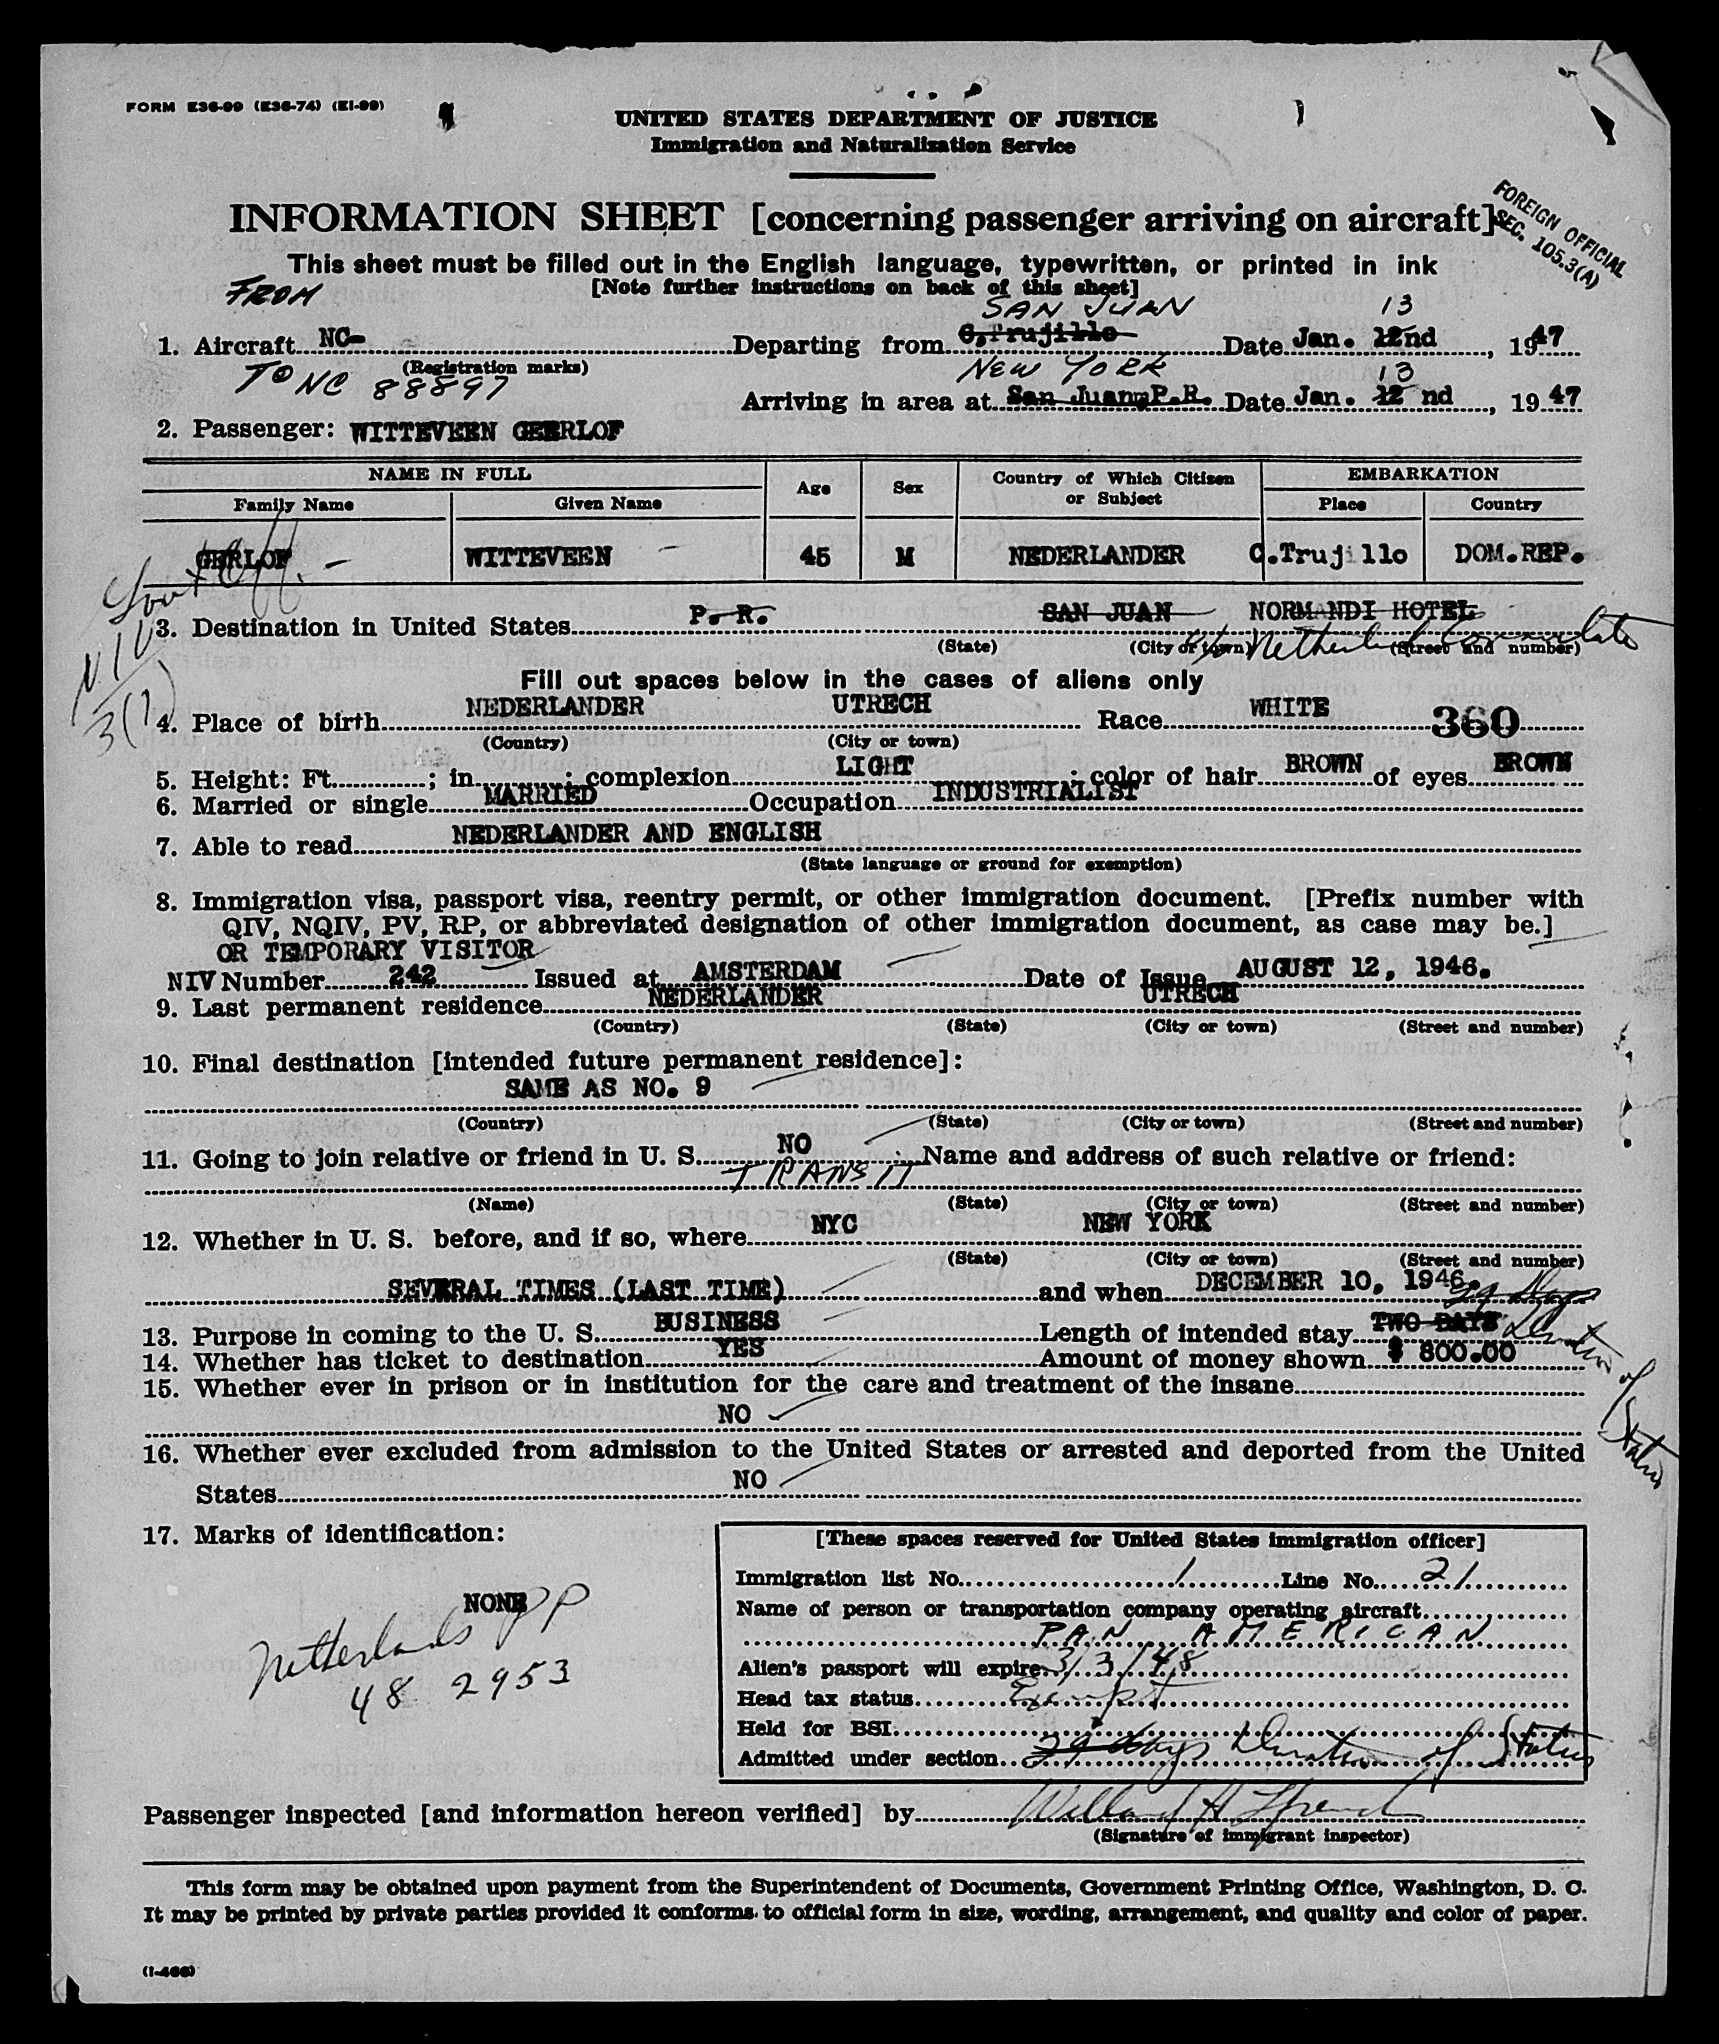 FORM E36-99 (E36-74) (EI-99)
UNITED STATES DEPARTMENT OF JUSTICE
Immigration and Naturalization Service
INFORMATION SHEET [concerning passenger arriving on aircraft]
FOREIGN OFFICIAL
SEC. 105.3(A)
This sheet must be filled out in the English language, typewritten, or printed in ink
FROM [Note further instructions on back of this sheet]
SAN JUAN 13
1. Aircraft NC- Departing from C.Trujillo Date Jan. 12nd, 1947
(Registration marks)
TO NC 88897 NEW YORK 13
Arriving in area at San Juan, P.R. Date Jan. 12 nd, 1947
2. Passenger: WITTEVEEN GEERLOF
NAME IN FULL Age Sex Country of Which Citizen or Subject EMBARKATION
Family Name Given Name Place Country
GERLOF WITTEVEEN - 45 M NEDERLANDER C.Trujillo DOM.REP.
NIV
3(7)
3. Destination in United States P. R. SAN JUAN NORMANDI HOTEL
(State) (City or town) (Street and number)
c/o Netherland Consulate
Fill out spaces below in the cases of aliens only
4. Place of birth NEDERLANDER UTRECH Race WHITE 360
(Country) (City or town)
5. Height: Ft. ; in. ; complexion LIGHT ; color of hair BROWN of eyes BROWN
6. Married or single MARRIED Occupation INDUSTRIALIST
7. Able to read NEDERLANDER AND ENGLISH
(State language or ground for exemption)
8. Immigration visa, passport visa, reentry permit, or other immigration document. [Prefix number with
QIV, NQIV, PV, RP, or abbreviated designation of other immigration document, as case may be.]
OR TEMPORARY VISITOR
NIV Number 242 Issued at AMSTERDAM Date of Issue AUGUST 12, 1946.
9. Last permanent residence NEDERLANDER UTRECH
(Country) (State) (City or town) (Street and number)
10. Final destination [intended future permanent residence]:
SAME AS NO. 9
(Country) (State) (City or town) (Street and number)
11. Going to join relative or friend in U. S. NO ; Name and address of such relative or friend:
TRANSIT
(Name) (State) (City or town) (Street and number)
12. Whether in U. S. before, and if so, where NYC NEW YORK
(State) (City or town) (Street and number)
SEVERAL TIMES (LAST TIME) and when DECEMBER 10, 1946.
29 days
13. Purpose in coming to the U. S. BUSINESS Length of intended stay TWO DAYS Duration of Status
14. Whether has ticket to destination YES Amount of money shown $ 800.00
15. Whether ever in prison or in institution for the care and treatment of the insane
NO
16. Whether ever excluded from admission to the United States or arrested and deported from the United
States NO
17. Marks of identification:
NONE
Netherlands PP
48 2953
[These spaces reserved for United States immigration officer]
Immigration list No. 1 Line No. 21
Name of person or transportation company operating aircraft
PAN AMERICAN
Alien's passport will expire 3/3/48
Head tax status Exempt
Held for BSI
Admitted under section 29 days Duration of Status
Passenger inspected [and information hereon verified] by
(Signature of immigrant inspector)
This form may be obtained upon payment from the Superintendent of Documents, Government Printing Office, Washington, D. C.
It may be printed by private parties provided it conforms to official form in size, wording, arrangement, and quality and color of paper.
(I-466)